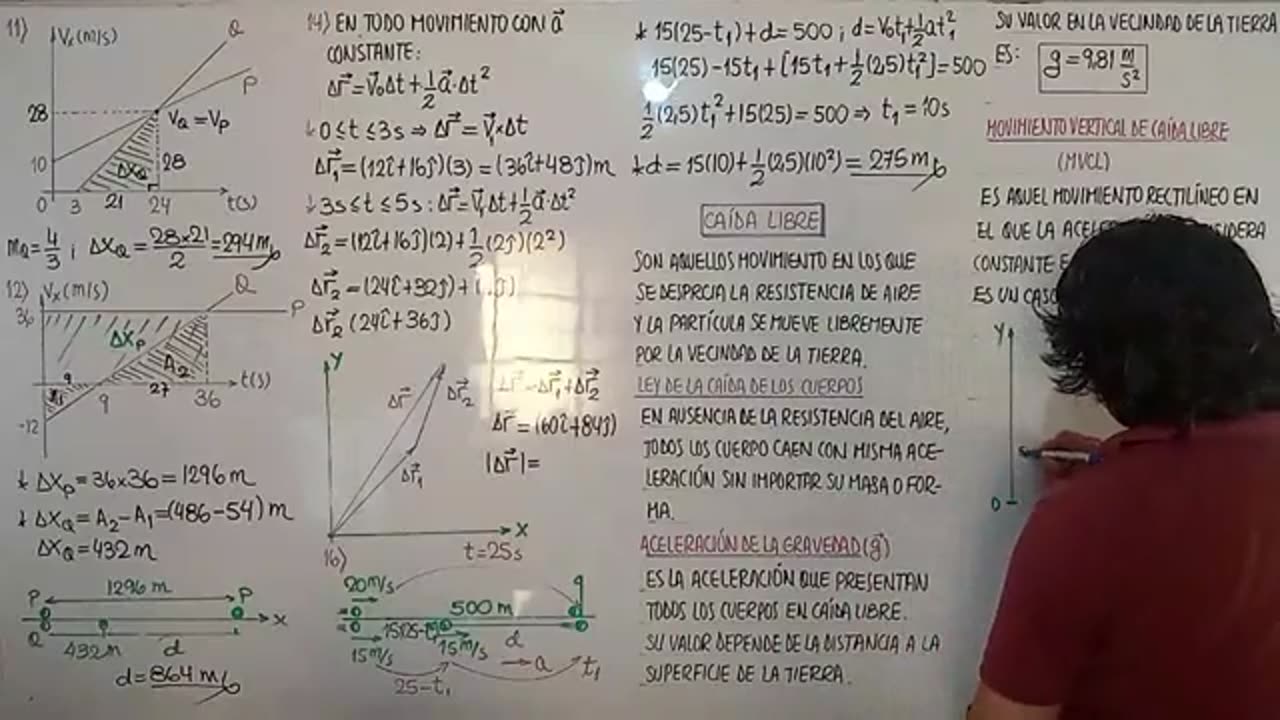 11)
Vx(m/s)
Q
P
28
VQ = VP
10
ΔXQ
28
0 3 21 24 t(s)
mQ = 4/3 ; ΔXQ = 28×21/2 = 294 m
12) Vx(m/s)
Q
P
36
ΔXP
A2
9
27
t(s)
9 36
-12
ΔXP = 36×36 = 1296 m
ΔXQ = A2 - A1 = (486-54) m
ΔXQ = 432 m
1296 m
P P
Q X
432m d
d = 864 m
14) EN TODO MOVIMIENTO CON a⃗
CONSTANTE:
Δr⃗ = V⃗0Δt + 1/2 a⃗·Δt²
0 ≤ t ≤ 3s ⇒ Δr⃗ = V⃗×Δt
Δr⃗1 = (12î+16ĵ)(3) = (36î+48ĵ)m
3s ≤ t ≤ 5s : Δr⃗ = V⃗1Δt + 1/2 a⃗·Δt²
Δr⃗2 = (12î+16ĵ)(2) + 1/2(2ĵ)(2²)
Δr⃗2 = (24î+32ĵ) + ( ĵ)
Δr⃗2 (24î+36ĵ)
Y
Δr⃗
Δr⃗2
Δr⃗1
X
Δr⃗ = Δr⃗1 + Δr⃗2
Δr⃗ = (60î+84ĵ)
|Δr⃗| =
16)
t = 25s
20m/s
500 m
15(25-t1)
15m/s 15m/s d
a
25-t1 t1
15(25-t1) + d = 500 ; d = V0t1 + 1/2 at1²
15(25) - 15t1 + [15t1 + 1/2(2,5)t1²] = 500
1/2(2,5)t1² + 15(25) = 500 ⇒ t1 = 10s
d = 15(10) + 1/2(2,5)(10²) = 275 m
CAÍDA LIBRE
SON AQUELLOS MOVIMIENTO EN LOS QUE
SE DESPRCIA LA RESISTENCIA DE AIRE
Y LA PARTÍCULA SE MUEVE LIBREMENTE
POR LA VECINDAD DE LA TIERRA.
LEY DE LA CAÍDA DE LOS CUERPOS
EN AUSENCIA DE LA RESISTENCIA DEL AIRE,
TODOS LOS CUERPO CAEN CON MISMA ACE-
LERACIÓN SIN IMPORTAR SU MASA O FOR-
MA.
ACELERACIÓN DE LA GRAVEDAD (g⃗)
ES LA ACELERACIÓN QUE PRESENTAN
TODOS LOS CUERPOS EN CAÍDA LIBRE.
SU VALOR DEPENDE DE LA DISTANCIA A LA
SUPERFICIE DE LA TIERRA.
SU VALOR EN LA VECINDAD DE LA TIERRA
ES: g = 9,81 m/s²
MOVIMIENTO VERTICAL DE CAÍDA LIBRE
(MVCL)
ES AQUEL MOVIMIENTO RECTILÍNEO EN
EL QUE LA
CONSTANTE
ES UN
Y
0